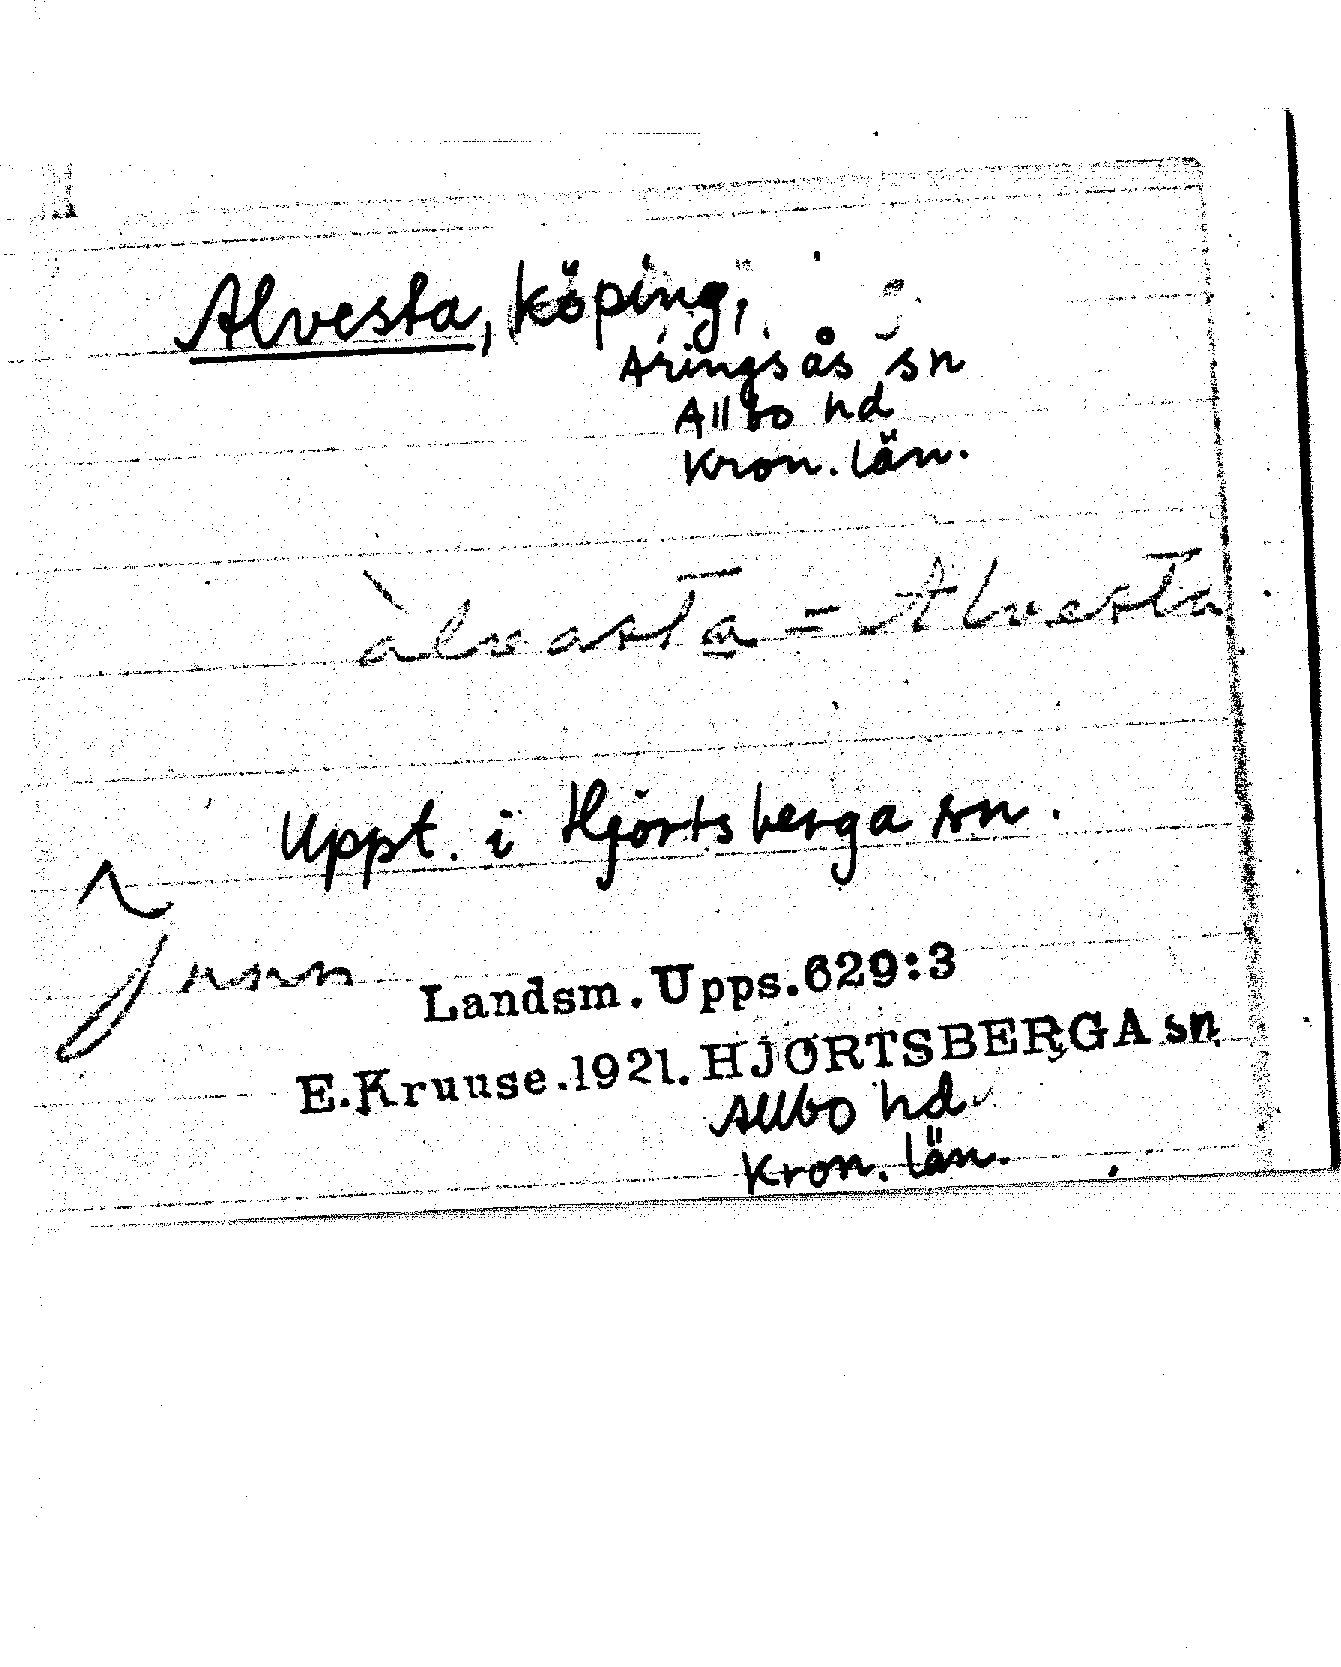 Alvesta, köping,
Aringsås sn
Allbo hd
Kron. län.
àlvasta = Alvesta
Uppt. i Hjortsberga sn.
Landsm. Upps. 629:3
E. Kruuse. 1921. HJORTSBERGA sn
Allbo hd
Kron. län.